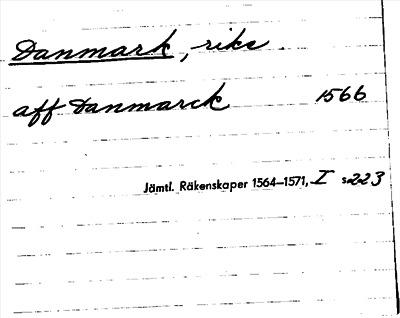 Danmark, rike
aff Danmarck 1566
Jämtl. Räkenskaper 1564–1571, I s. 223